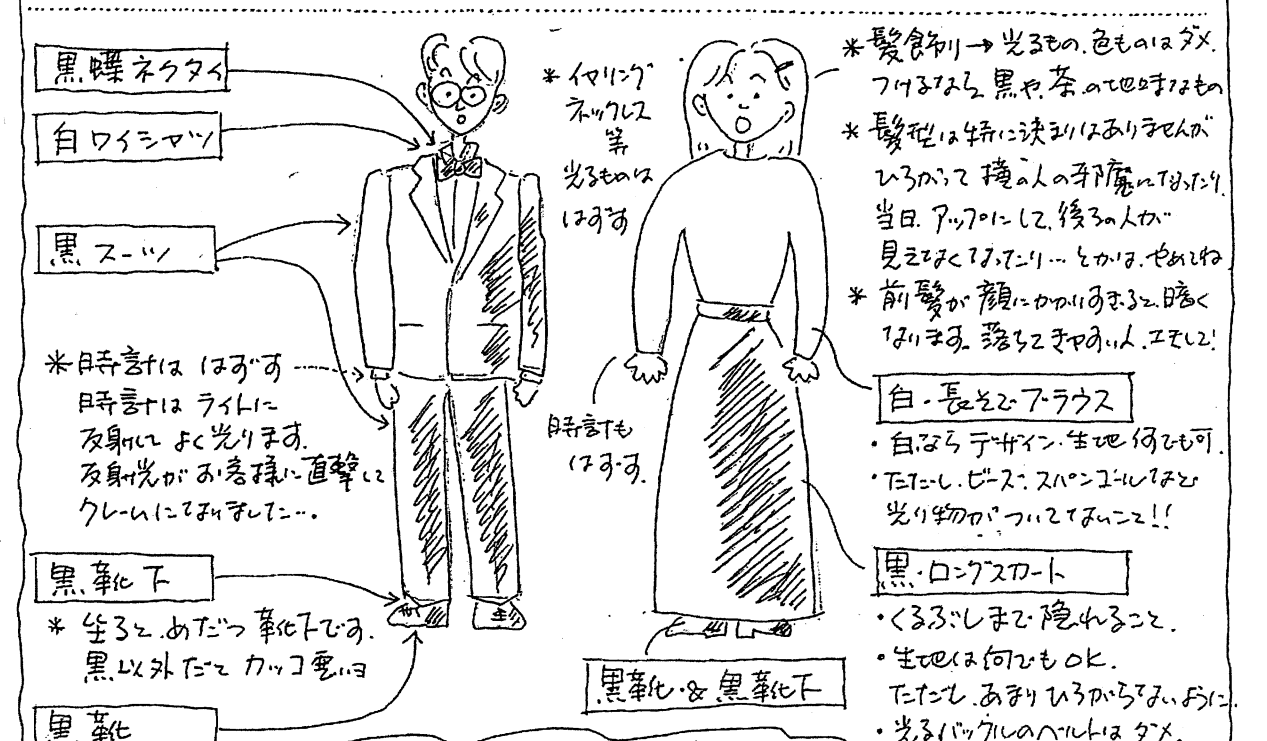 黒蝶ネクタイ
白ワイシャツ
黒スーツ
*時計は はずす
時計は ライトに
反射して よく光ります。
反射光が お客様に直撃して
クレームになりました…。
黒靴下
* 坐ると、めだつ靴下です。
黒以外だと カッコ悪いヨ
黒靴
* イヤリング
ネックレス
等
光るものは
はずす
時計も
はずす。
黒靴・&黒靴下
*髪飾り→光るもの、色ものはダメ。
つけるなら、黒や、茶、の地味なもの
* 髪型は特に決まりはありませんが
ひろがって 横の人の邪魔になったり、
当日、アップにして、後ろの人が
見えなくなったり…とかは、やめてね
* 前髪が 顔にかかりすぎると、暗く
なります。落ちてきやすい人、工夫して!
白・長そでブラウス
・白なら デザイン・生地 何でも可。
・ただし、ビーズ、スパンコールなど
光り物が ついてないこと!!
黒・ロングスカート
・くるぶしまで 隠れること。
・生地は何でも OK.
ただし、あまり ひろがらないように。
・光るバックルのベルトは ダメ。